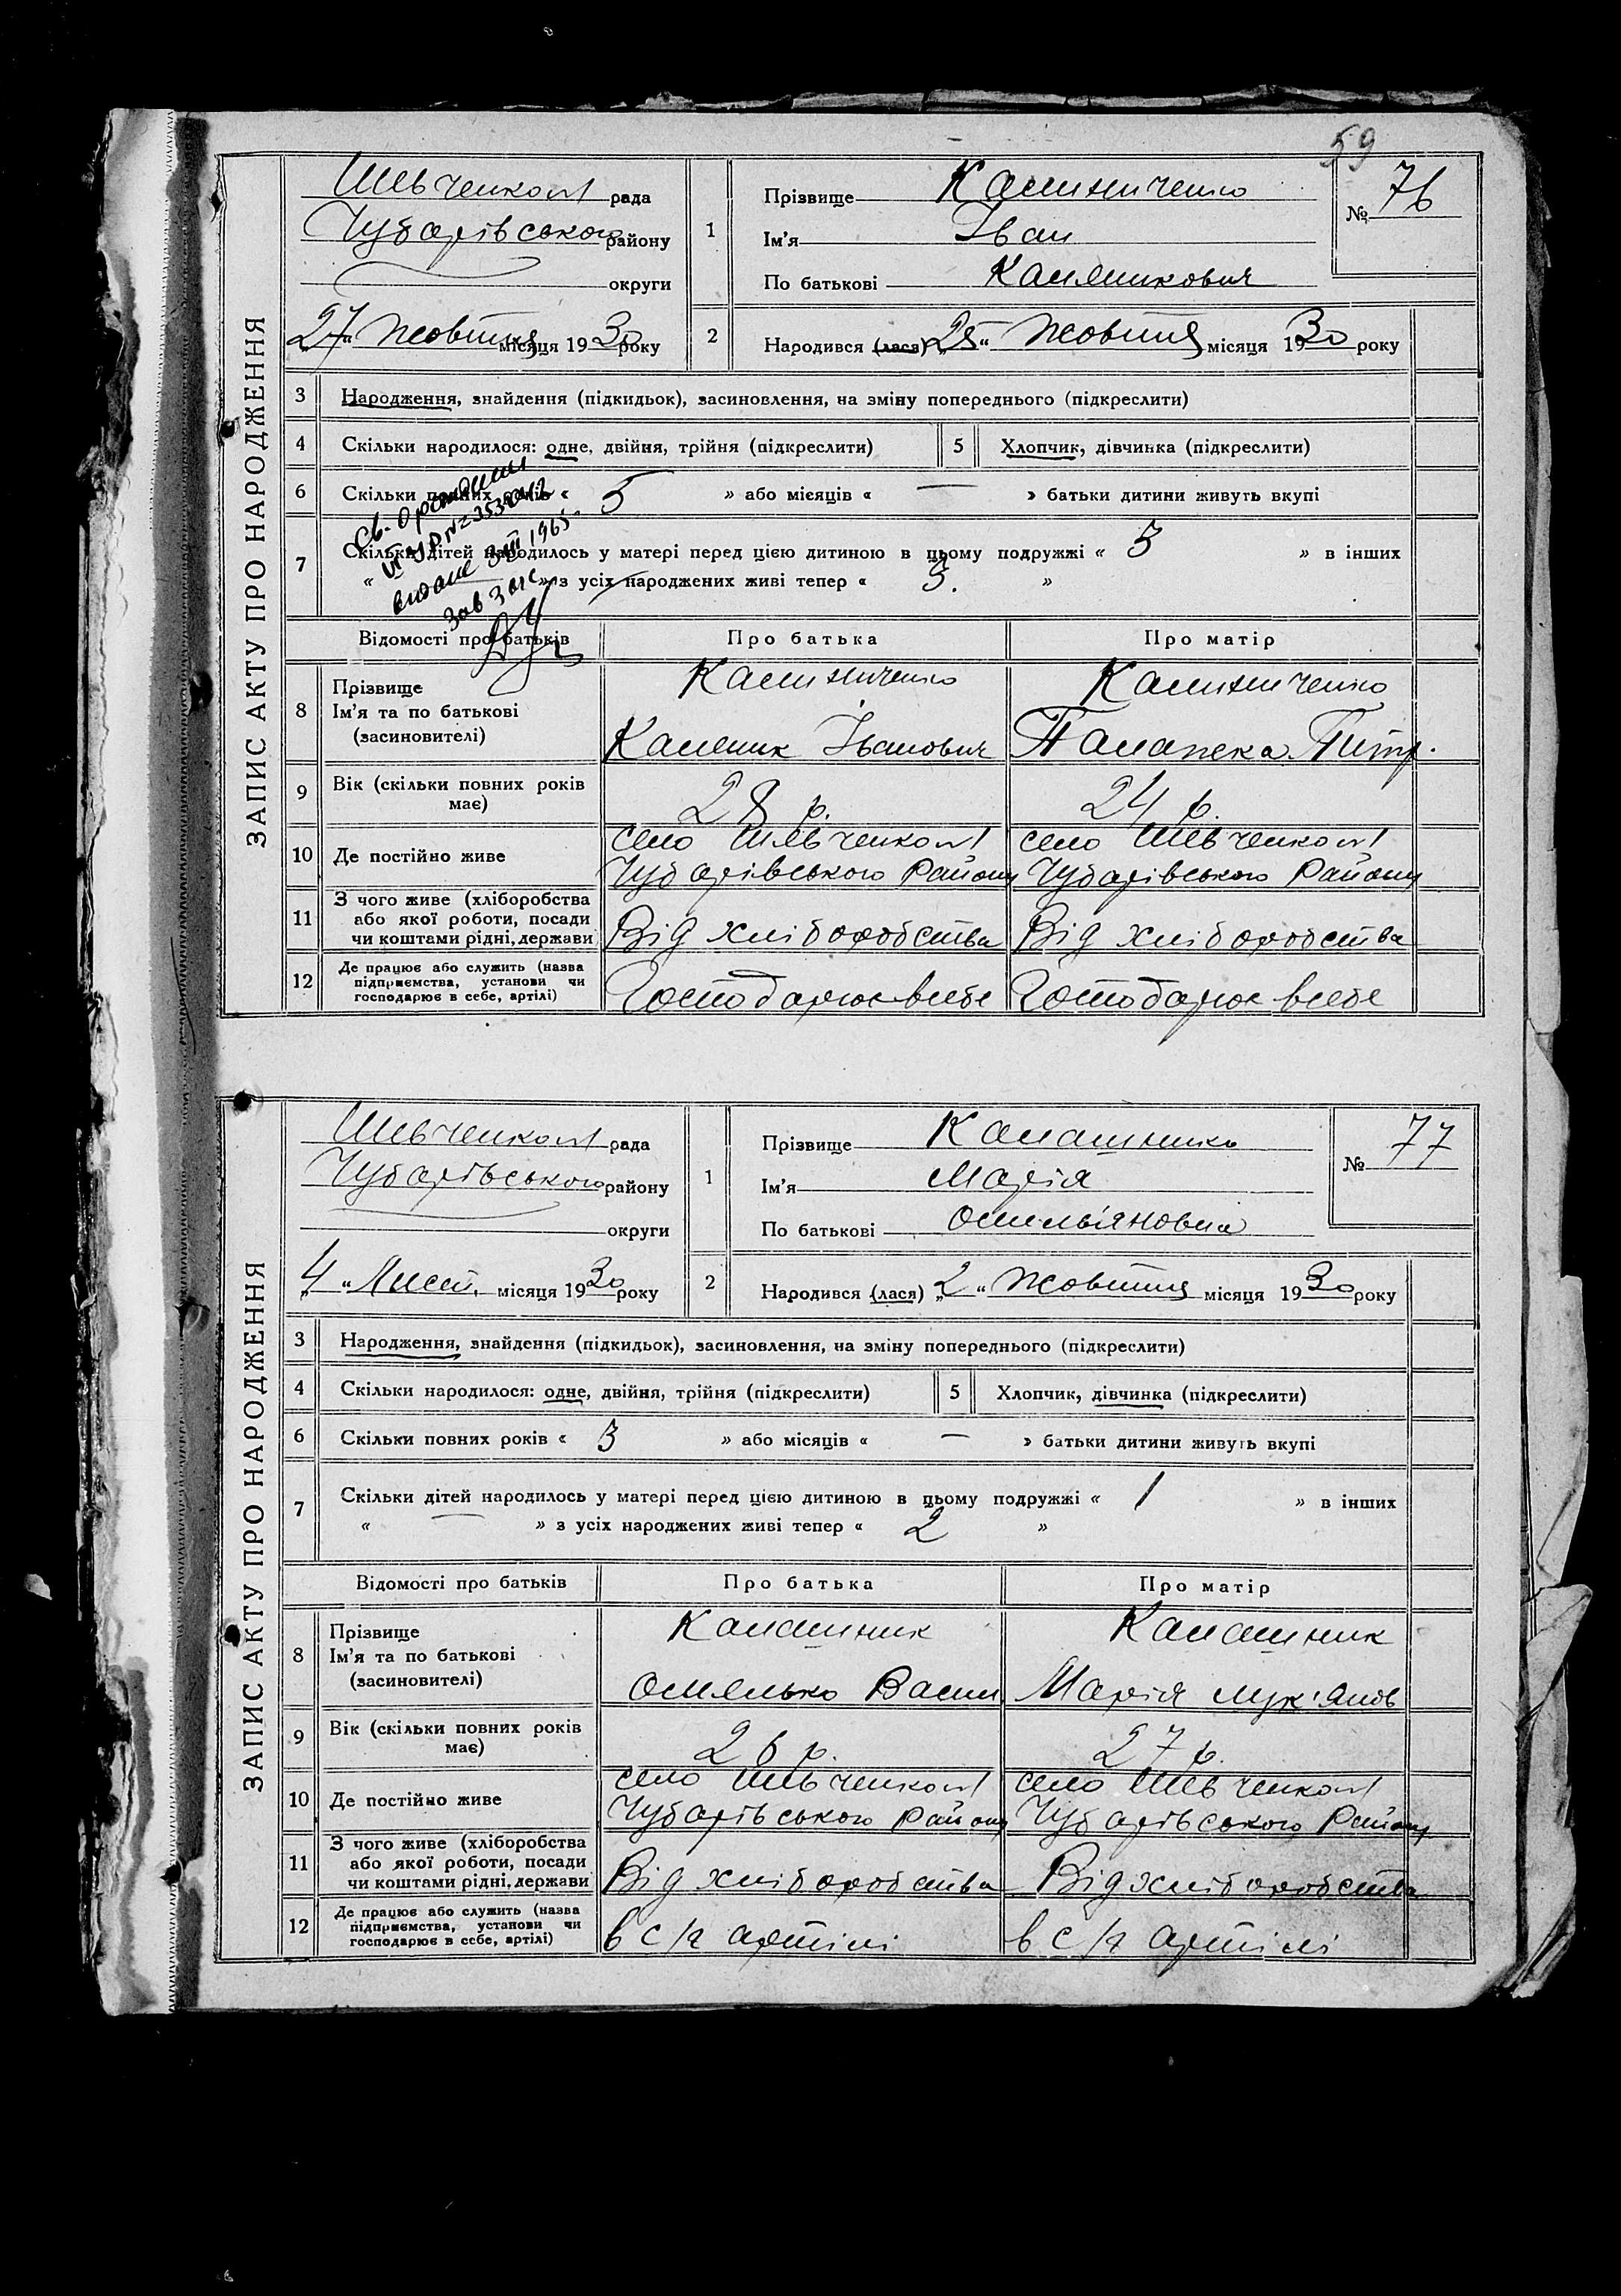 59
ЗАПИС АКТУ ПРО НАРОДЖЕННЯ
Шевченков рада
Чубарівського району
округи
„27“ Жовтня місяця 1930 року
1
Прізвище
Ім'я Іван
По батькові
№ 76
2
Народився (лася) „25“ Жовтня місяця 1930 року
3 Народження, знайдення (підкидьок), засиновлення, на зміну попереднього (підкреслити)
4 Скільки народилося: одне, двійня, трійня (підкреслити)
5 Хлопчик, дівчинка (підкреслити)
6 Скільки повних років « 5 » або місяців « — » батьки дитини живуть вкупі
7 Скільки дітей народилось у матері перед цією дитиною в цьому подружжі « 3 » в інших
« — » з усіх народжених живі тепер « 3. »
видане 1965
Відомості про батьків
Про батька
Про матір
8 Прізвище
Ім'я та по батькові
(засиновителі)
Іванович
Петр.
9 Вік (скільки повних років має)
28 р.
24 р.
10 Де постійно живе
село Шевченков
Чубарівського Району
село Шевченков
Чубарівського Району
11 З чого живе (хліборобства
або якої роботи, посади
чи коштами рідні, держави
Від хліборобства
Від хліборобства
12 Де працює або служить (назва
підприємства, установи чи
господарює в себе, артілі)
Господарює всебе
Господарює всебе
ЗАПИС АКТУ ПРО НАРОДЖЕННЯ
Шевченков рада
Чубарівського району
округи
„4“ Лист. місяця 1930 року
1
Прізвище
Ім'я Марія
По батькові Омельяновна
№ 77
2
Народився (лася) „2“ Жовтня місяця 1930 року
3 Народження, знайдення (підкидьок), засиновлення, на зміну попереднього (підкреслити)
4 Скільки народилося: одне, двійня, трійня (підкреслити)
5 Хлопчик, дівчинка (підкреслити)
6 Скільки повних років « 3 » або місяців « — » батьки дитини живуть вкупі
7 Скільки дітей народилось у матері перед цією дитиною в цьому подружжі « 1 » в інших
« — » з усіх народжених живі тепер « 2 »
Відомості про батьків
Про батька
Про матір
8 Прізвище
Ім'я та по батькові
(засиновителі)
Калашник
Омелько Васил
Калашник
Марія Лук'янов
9 Вік (скільки повних років має)
26 р.
27 р.
10 Де постійно живе
село Шевченков
Чубарівського Району
село Шевченков
Чубарівського Району
11 З чого живе (хліборобства
або якої роботи, посади
чи коштами рідні, держави
Від хліборобства
Від хліборобства
12 Де працює або служить (назва
підприємства, установи чи
господарює в себе, артілі)
в с/г артілі
в с/г артілі